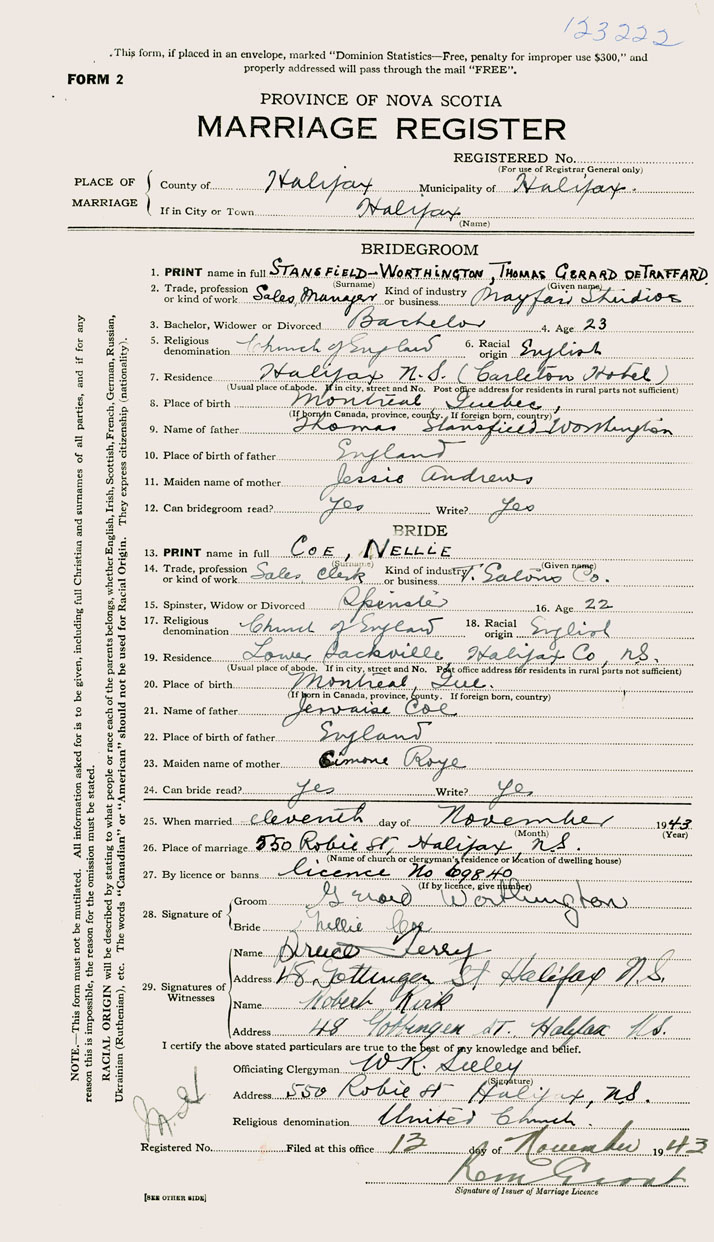 123222
. This form, if placed in an envelope, marked "Dominion Statistics—Free, penalty for improper use $300," and
properly addressed will pass through the mail "FREE".
FORM 2
PROVINCE OF NOVA SCOTIA
MARRIAGE REGISTER
REGISTERED No.
(For use of Registrar General only)
PLACE OF MARRIAGE
County of Halifax Municipality of Halifax.
If in City or Town Halifax
(Name)
BRIDEGROOM
1. PRINT name in full STANSFIELD-WORTHINGTON, THOMAS GERARD DETRAFFARD
(Surname) (Given name)
2. Trade, profession or kind of work Sales Manager Kind of industry or business Mayfair Studios
3. Bachelor, Widower or Divorced Bachelor 4. Age 23
5. Religious denomination Church of England 6. Racial origin English
7. Residence Halifax N.S. (Carleton Hotel)
(Usual place of abode. If in city, street and No. Post office address for residents in rural parts not sufficient)
8. Place of birth Montreal, Quebec,
(If born in Canada, province, county. If foreign born, country)
9. Name of father Thomas Stansfield-Worthington
10. Place of birth of father England
11. Maiden name of mother Jessie Andrews
12. Can bridegroom read? Yes Write? Yes
BRIDE
13. PRINT name in full COE, NELLIE
(Surname) (Given name)
14. Trade, profession or kind of work Sales Clerk Kind of industry or business T. Eatons Co.
15. Spinster, Widow or Divorced Spinster 16. Age 22
17. Religious denomination Church of England 18. Racial origin English
19. Residence Lower Sackville, Halifax Co, N.S.
(Usual place of abode. If in city, street and No. Post office address for residents in rural parts not sufficient)
20. Place of birth Montreal, Que.
(If born in Canada, province, county. If foreign born, country)
21. Name of father Jervaise Coe
22. Place of birth of father England
23. Maiden name of mother Simone Roye
24. Can bride read? Yes Write? Yes
25. When married eleventh day of November 1943
(Month) (Year)
26. Place of marriage 550 Robie St, Halifax, N.S.
(Name of church or clergyman's residence or location of dwelling house)
27. By licence or banns licence No 69840
(If by licence, give number)
28. Signature of
Groom Gerard Worthington
Bride Nellie Coe
29. Signatures of Witnesses
Name Bruce Terry
Address 48 Gottingen St Halifax N.S.
Name Robert Kirk
Address 48 Gottingen St. Halifax N.S.
I certify the above stated particulars are true to the best of my knowledge and belief.
Officiating Clergyman W.R. Seeley
(Signature)
Address 550 Robie St Halifax, N.S.
Religious denomination United Church.
Registered No. Filed at this office 12 day of November 1943
Signature of Issuer of Marriage Licence
[SEE OTHER SIDE]
NOTE.—This form must not be mutilated. All information asked for is to be given, including full Christian and surnames of all parties, and if for any
reason this is impossible, the reason for the omission must be stated.
RACIAL ORIGIN will be described by stating to what people or race each of the parents belongs, whether English, Irish, Scottish, French, German, Russian,
Ukrainian (Ruthenian), etc. The words "Canadian" or "American" should not be used for Racial Origin. They express citizenship (nationality).